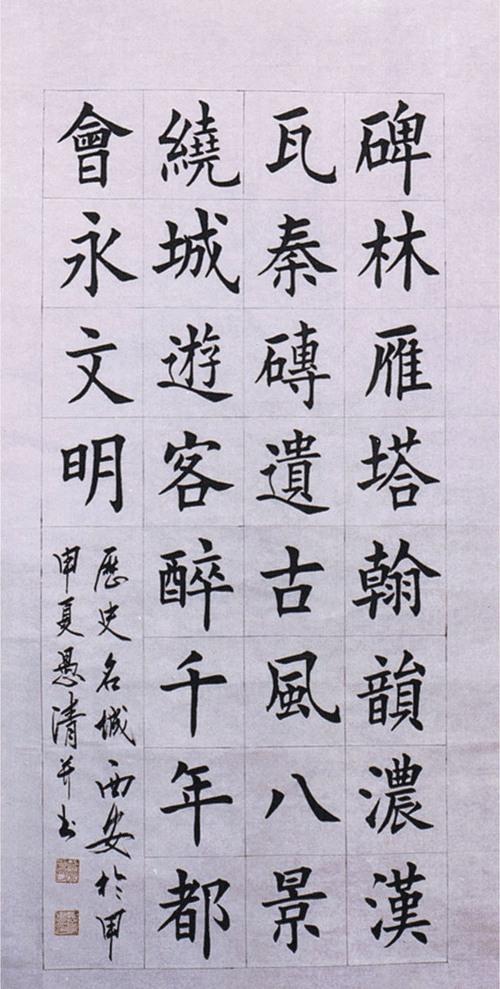 碑林雁塔翰韻濃漢
瓦秦磚遺古風八景
繞城遊客醉千年都
會永文明
歷史名城西安於甲
申夏愚清并书